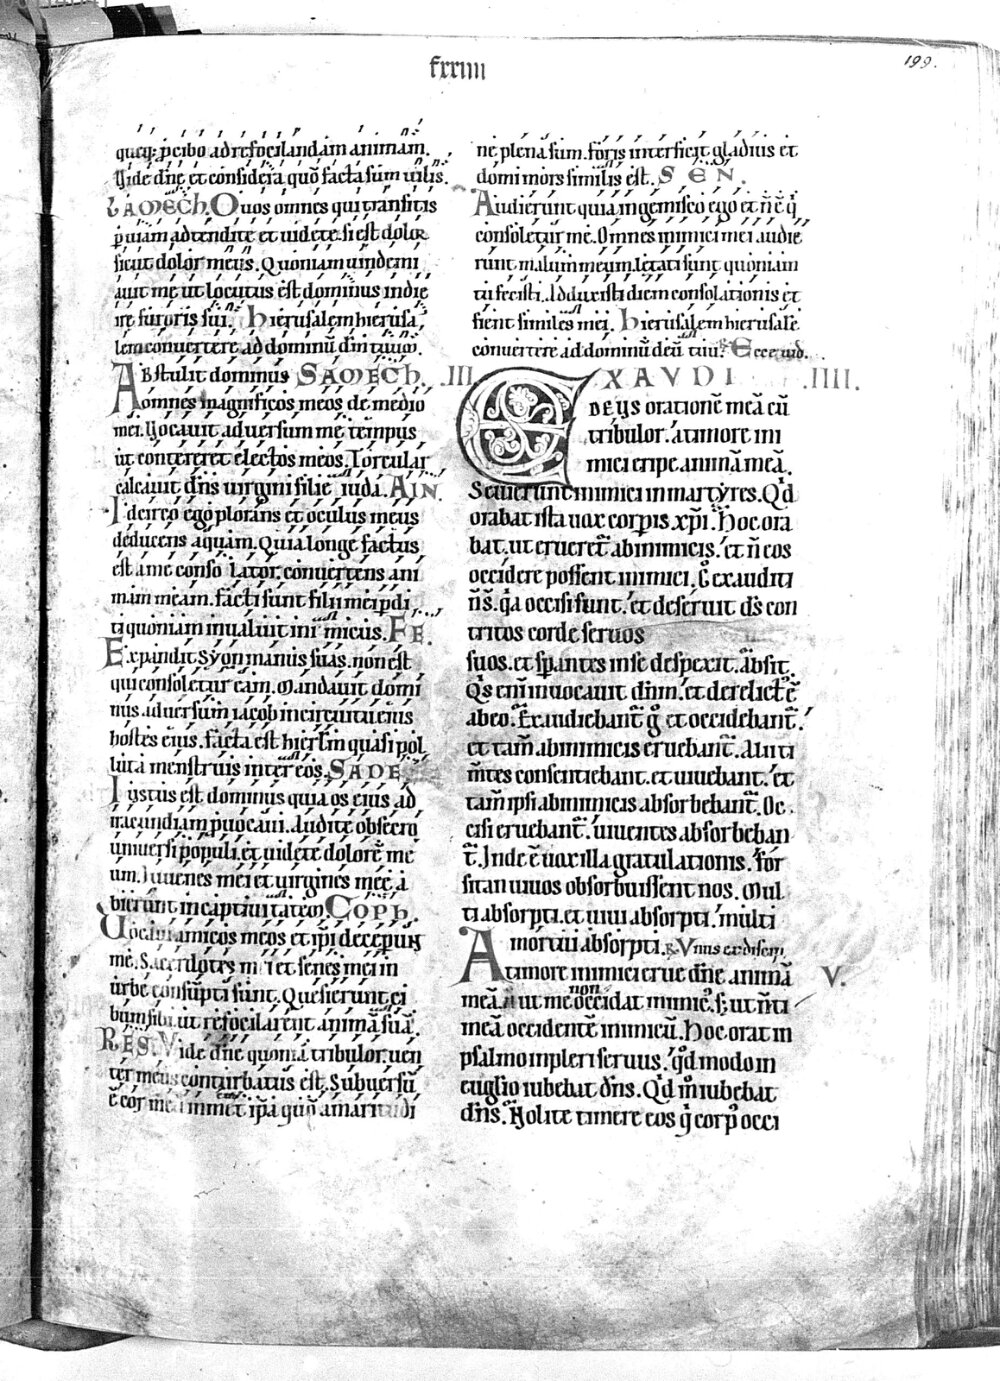 fxxiiii
199.
queq; p̱ cibo ad refocilandam animam.
Vide dn̄e et considera quō facta sum uilis.
LAMECH. O uos omnes qui transitis
p̱ uiam adtendite et uidete. si est dolor
sicut dolor meus. Quoniam uindemi
auit me ut locutus est dominus in die
ire furoris sui. Hierusalem hierusa
lem conuertere ad dominū dm̄ tuum.
Abstulit dominus SAMECH. .III.
omnes magnificos meos de medio
mei. Vocauit aduersum me tempus
ut contereret electos meos. Torcular
calcauit dn̄s uirgini filie iuda. AIN.
Idcirco ego plorans et oculus meus
deducens aquam. Quia longe factus
est a me consolator. conuertens ani
mam meam. facti sunt filii mei p̱di
ti quoniam inualuit inimicus. FE.
Expandit syon manus suas. non est
qui consoletur eam. Mandauit domi
nus aduersum iacob in circuitu eius
hostes eius. facta est hierlm̄ quasi pol
luta menstruis inter eos. SADE
Iustus est dominus quia os eius ad
iracundiam p̱uocaui. Audite obsecro
uniuersi populi. et uidete dolorē me
um. Iuuenes mei et uirgines meę a
bierunt in captiuitatem. COPH.
Vocaui amicos meos et ip̄i deceperunt
me. Sacerdotes mei et senes mei in
urbe consūpti sunt. Quesierunt ci
bum sibi. ut refocilarent animā suā.
RES. Vide dn̄e quoniā tribulor. uen
ter meus conturbatus est. Subuersū
ē cor meū in memet ip̄a quō amaritudi
ne plena sum. foris interficit gladius et
domi mors similis est. SEN.
Audierunt quia ingemisco ego et n̄ ē q̇
consoletur me. Omnes inimici mei audie
runt malum meum. lętati sunt quoniam
tu fecisti. Adduxisti diem consolationis et
fient similes mei. Hierusalem hierusale
conuertere ad dominū deū tuū. Ecce uid.
EXAVDI .IIII.
DEUS orationē meā cū
tribulor. a timore ini
mici eripe animā meā.
Seuierunt inimici in martyres. Qd̄
orabat ista uox corporis xp̄i. Hoc ora
bat. ut erueret ab inimicis. et n̄ eos
occidere possent inimici. ḡ exauditi
n̄ s̄. qa occisi sunt. et deseruit ds̄ con
tritos corde seruos
suos. et sp̱antes in se despexit. absit.
Qs̄ enī inuocauit dn̄m. et derelictꝰ ē
ab eo. Exaudiebant̄ ḡ et occidebant̄.
et tam̄ ab inimicis eruebant̄. Alii ti
m̄tes consentiebant. et uiuebant. et
tam̄ ipsi ab inimicis absorbebant̄. Oc
cisi eruebant̄. uiuentes absorbeban
t̄. Inde ē uox illa gratulationis. For
sitan uiuos obsorbuissent nos. Mul
ti absorpti. et uiui absorpti. multi
mortui absorpti. R Vnus ex discipi
A timore inimici erue dn̄e animā V.
meā. ut me non occidat inimicꝰ. s; ut m̄ti
meā occidentē inimicū. Hoc orat in
psalmo impleri seruus. qd̄ modo in
euḡlio iubebat dn̄s. Qd m̊ iubebat
dn̄s. Nolite timere eos q̇ corpꝰ occi